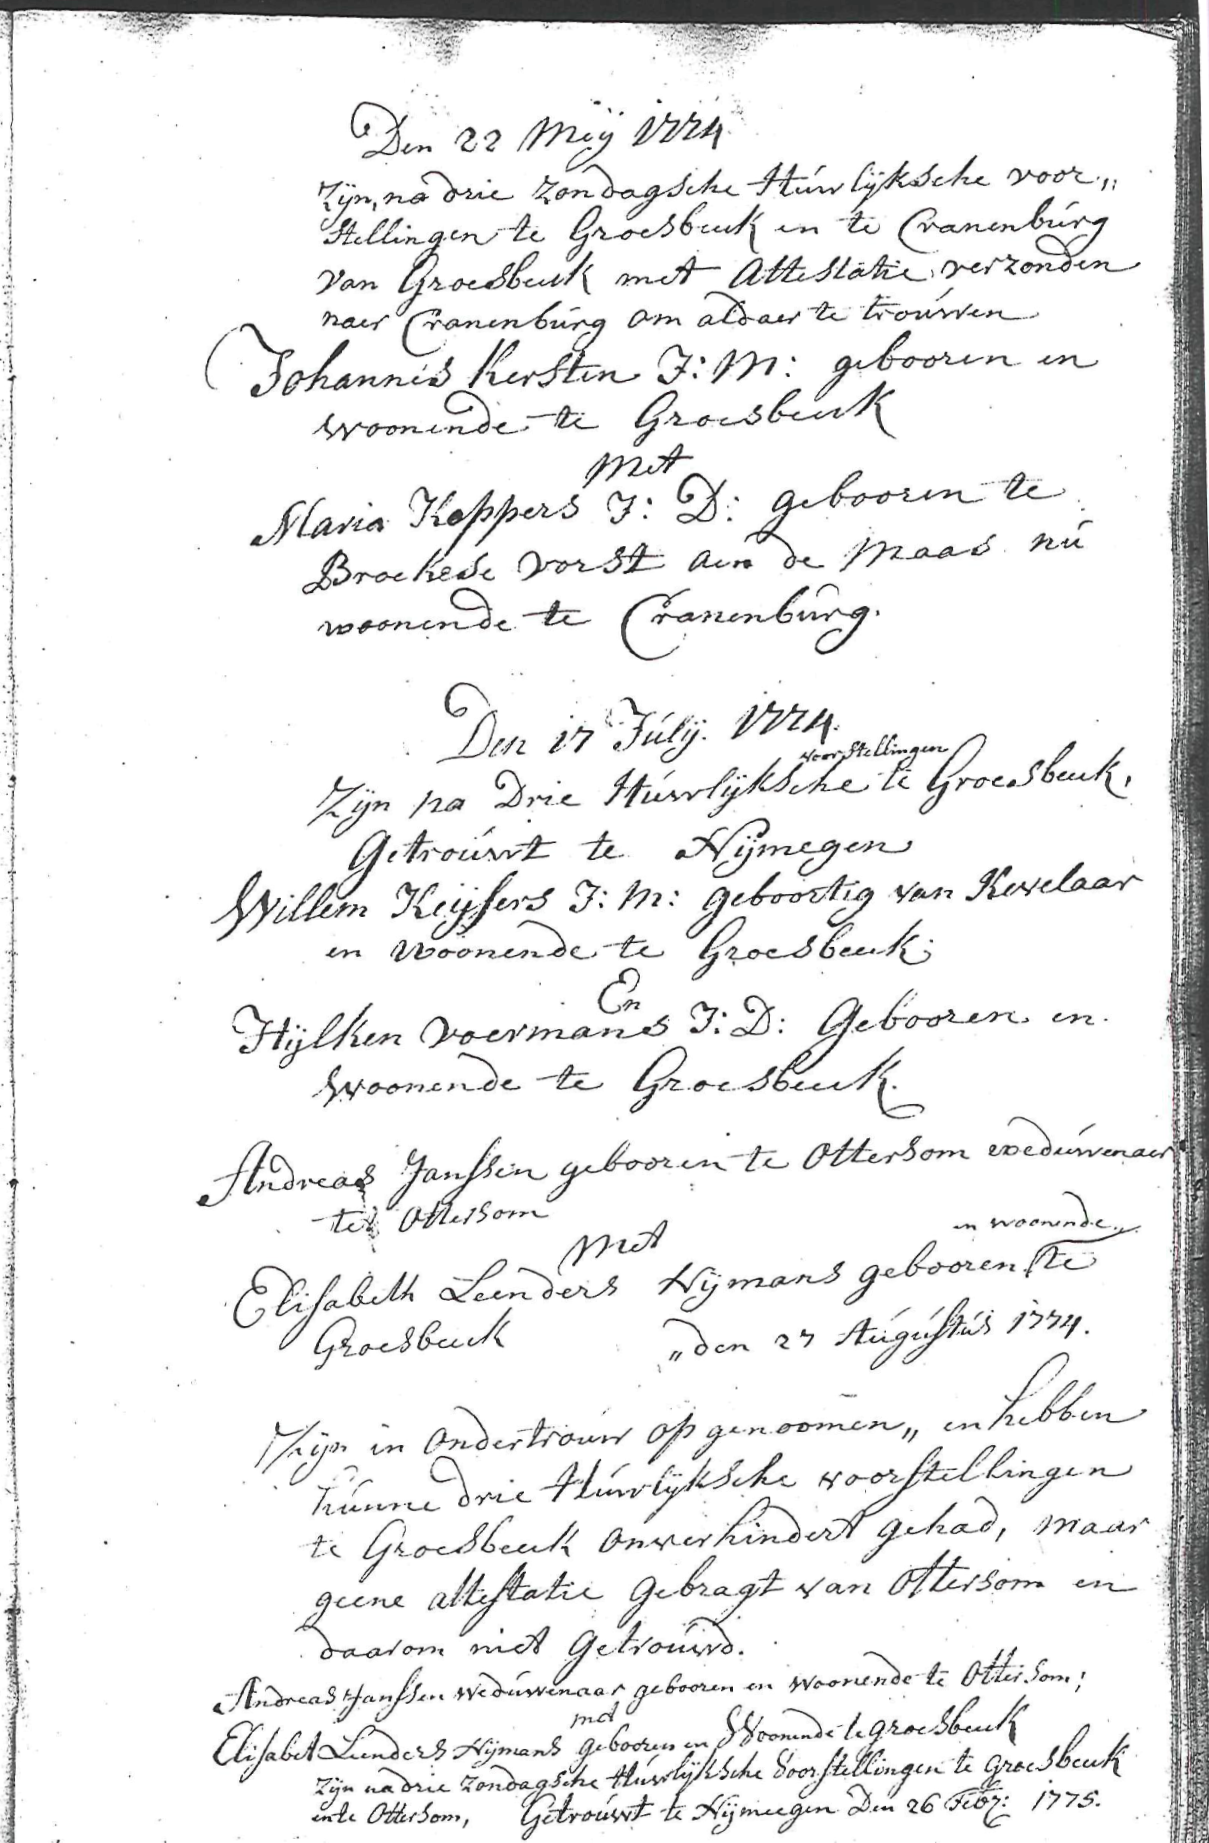 Den 22 Meÿ 1774
Zÿn, na drie zondagsche Húwlÿksche voor„
stellingen te Groesbeuk en te Cranenbúrg
van Groesbeuk met Attestatie verzonden
naer Cranenbúrg om aldaer te troúwen
Johannes Kersten J: M: gebooren en
woonende te Groesbeuk
Met
Maria Koppers J: D: gebooren te
Broekese Vorst aen de Maas nú
woonende te Cranenbúrg.
Den 17 Júlÿ. 1774.
voorstellingen
Zÿn na Drie Húwlÿksche te Groesbeuk,
Getroúwt te Nÿmegen
Willem Keÿsers J: M: geboortig van Kevelaar
en woonende te Groesbeuk;
En
Hÿlken Voermans J: D: Gebooren en
woonende te Groesbeuk.
Andreas Janssen gebooren te Ottersom wedúwenaer
te Ottersom
Met
en woonende
Elisabeth Leenders Nÿmans gebooren te
Groesbeuk „den 27 Aúgústús 1774.
Zijn in Ondertrouw op genoomen„ en hebben
húnne drie Húwlÿksche voorstellingen
te Groesbeuk onverhindert gehad, maar
geene attestatie gebragt van Ottersom en
daarom niet Getroúwd.
Andreas Janssen Wedúwenaar gebooren en woonende te Ottersom;
met
Elisabet Leenders Nÿmans gebooren en Woonende te Groesbeuk
Zÿn na drie Zondagsche Húwlÿksche Voorstellingen te Groesbeuk
en te Ottersom, Getroúwt te Nÿmeegen Den 26 Febr: 1775.